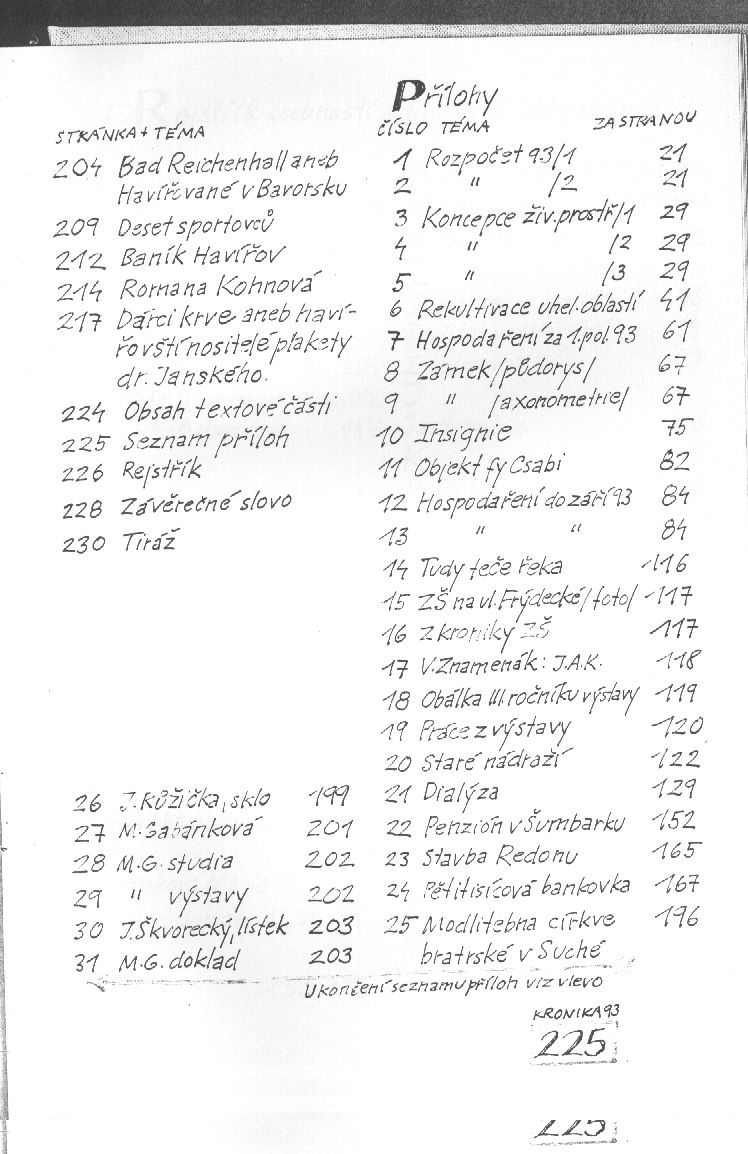 STRÁNKA + TÉMA
204 Bad Reichenhall aneb
Havířované v Bavorsku
209 Deset sportovců
212 Baník Havířov
214 Romana Kohnová
217 Dárci krve aneb haví-
řovští nositelé plakety
dr. Janského.
224 Obsah textové části
225 Seznam příloh
226 Rejstřík
228 Závěrečné slovo
230 Tiráž
Přílohy
ČÍSLO TÉMA ZA STRANOU
1 Rozpočet 93/1 21
2 " /2 21
3 Koncepce živ.prostř/1 29
4 " /2 29
5 " /3 29
6 Rekultivace uhel.oblastí 41
7 Hospodaření za 1.pol.93 61
8 Zámek/půdorys/ 67
9 " /axonometrie/ 67
10 Insignie 75
11 Objekt fy Csabi 82
12 Hospodaření do září 93 84
13 " " 84
14 Tudy teče řeka 116
15 ZŠ na ul.Frýdecké/foto/ 117
16 Z kroniky ZŠ 117
17 V.Znamenák: J.A.K. 118
18 Obálka III.ročníku výstavy 119
19 Práce z výstavy 120
20 Staré nádraží 122
21 Dialýza 129
22 Penzión v Šumbarku 152
23 Stavba Redonu 165
24 Pětitisícová bankovka 167
25 Modlitebna církve 196
bratrské v Suché
26 J.Růžička, sklo 199
27 M.Gabánková 201
28 M.G. studia 202
29 " výstavy 202
30 J.Škvorecký, lístek 203
31 M.G. doklad 203
Ukončení seznamu příloh viz vlevo
KRONIKA 93
225
225